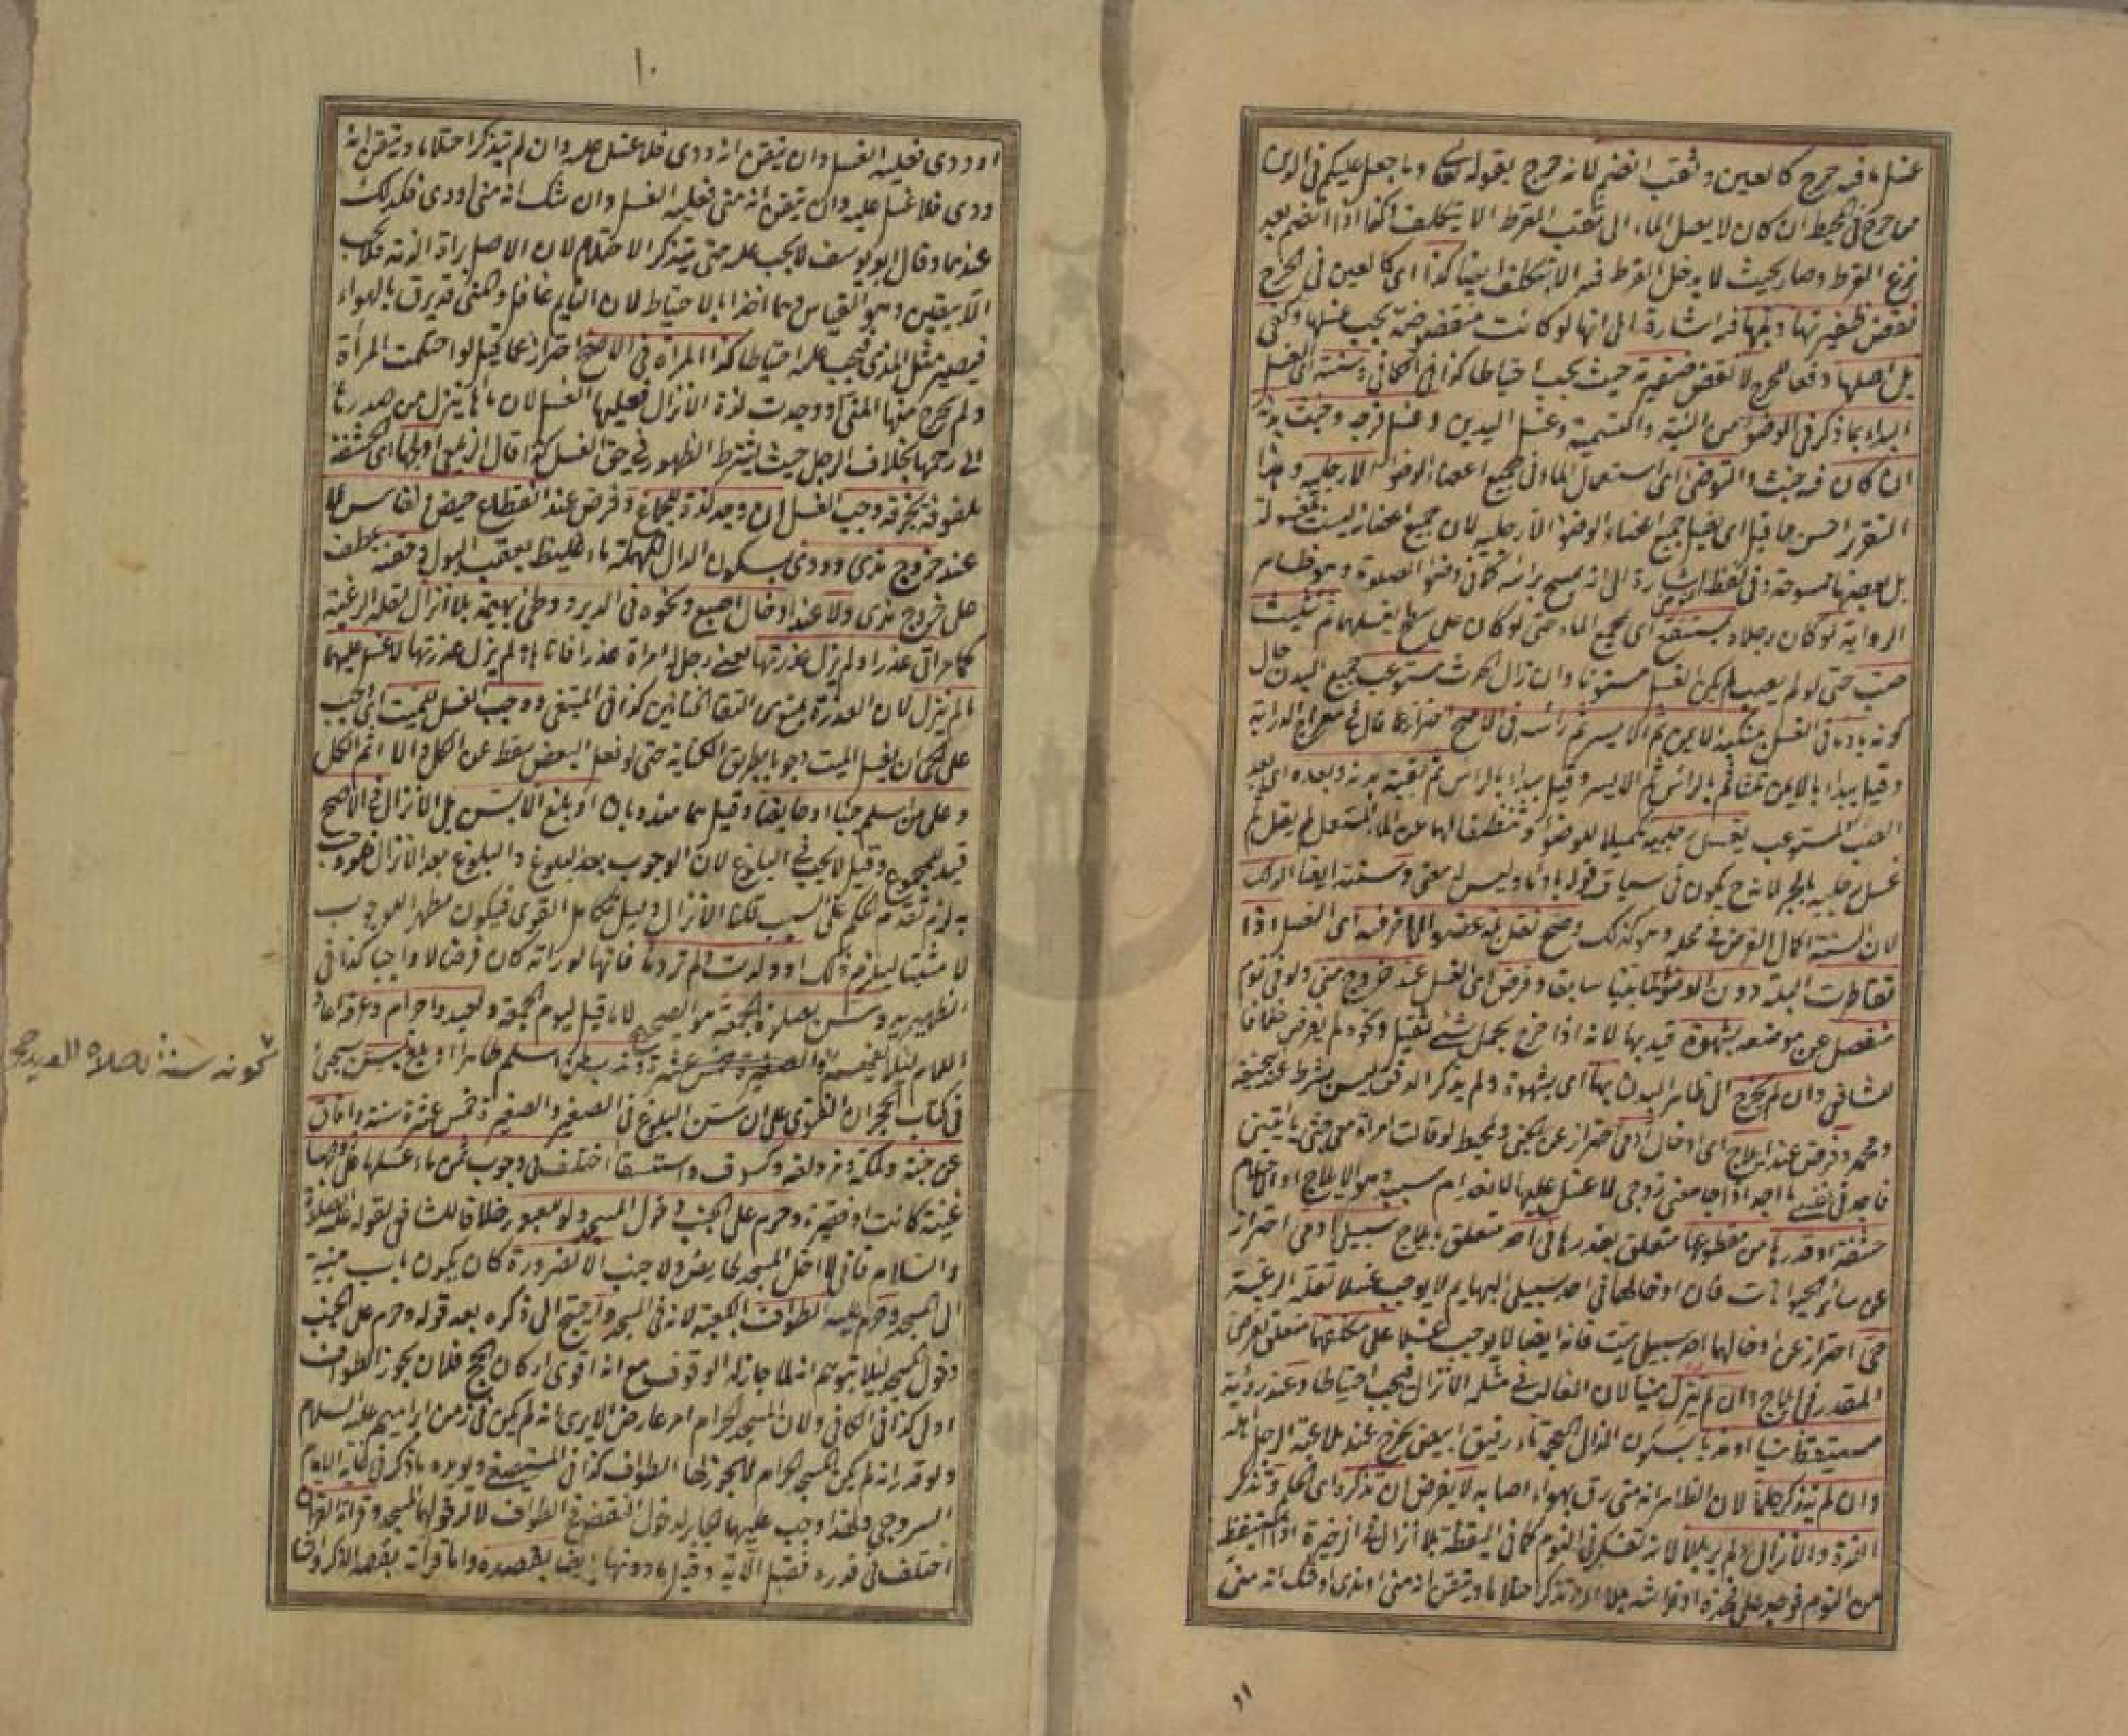 غسل ما فيه حرج كالعين وثقب انضم لانه حرج بقوله تعالى وما جعل عليكم في الدين
من حرج في المحيط ان كان لا يصل الماء الى ثقب القرط الا بتكلف اذا انضم بعد
نزع القرط وصار بحيث لا يدخل القرط فيه الا بتكلف ايضا كذا اى كالعين في الحرج
نقض ظفيرتها وبلها فيه اشارة الى انها لو كانت منقوضة يجب غسلها وكفى
بل اصلها دفعا للحرج لا نقض ضفيرته حيث يجب احتياطا كذا في الكافي وسنته اى الغسل
البداء بما ذكر في الوضوء من النية والتسمية وغسل اليدين وغسل فرجه وخبث بدنه
ان كان فيه خبث والتوضى اى استعمال الماء في جميع اعضاء الوضوء الا رجليه وهذا
التقرير احسن مما قيل اى يغسل جميع اعضاء الوضوء الا رجليه لان جميع اعضائه ليست مغسولة
بل بعضها ممسوحة وفي لفظ التوضى اشارة الى انه يمسح برأسه كما في وضوء الصلوة وهو ظاهر
الرواية لو كان رجلاه بمستنقع اى مجمع الماء حتى لو كان على سطح يغسلهما ثم تثليث
صب حتى لو لم يصب لم يكن الغسل مسنونا وان زال الحدث مستوعب جميع البدن حال
كونه بادئا في الغسل بمنكبه الايمن ثم الايسر ثم رأسه في الاصح احترازا عما قال في معراج الدراية
وقيل يبدأ بالايمن ثلثا ثم بالرأس ثم الايسر وقيل يبدأ بالرأس ثم بقية بدنه وبعده اى بعد
الصب المستوعب يغسل رجليه تكميلا للوضوء وتنظيفا لهما عن الماء المستعمل لم يقل ثم
غسل رجليه بالجر لانه ح يكون في سياق قوله بادئا وليس له معنى وسنته ايضا الدلك
لان السنة اكمال الفرض في محله وهو كذلك وصح نقل بلة عضو الى آخر فيه اى الغسل اذا
تقاطرت البلة دون الوضوء لما بينا سابقا وفرض اى الغسل عند خروج منى ولو في نوم
منفصل عن موضعه بشهوة قيد بها لانه اذا خرج بحمل شئ ثقيل ونحوه لم يفرض خلافا
لشافعي وان لم يخرج الى ظاهر البدن بها اى بشهوة ولم يذكر الدفق ليس بشرط عند ابي حنيفة
ومحمد وفرض عند ايلاج اى ادخال آدمى احتراز عن الجنى في المحيط لو قالت امرأة معى جنى يأتينى
فاجد في نفسى ما اجد اذا جامعنى زوجى لا غسل عليها لانعدام سببه وهو الايلاج او الاحتلام
حشفة او قدرها من مقطوعها متعلق بقدرها في احد متعلق بايلاج سبيلى آدمى احتراز
عن سائر الحيوانات فان ادخالها في احد سبيلى البهايم لا يوجب غسلا لقلة الرغبة
حى احتراز عن ادخالها احد سبيلى ميت فانه ايضا لا يوجب غسلا على مكلفهما متعلق بفرض
المقدر في ايلاج وان لم ينزل منيا لان الغالب في مثله الانزال فيجب احتياطا وعند رؤية
مستيقظ منيا او مذيا بسكون الذال المعجمة ماء رقيق ابيض يخرج عند ملاعبة الرجل اهله
وان لم يتذكر حلما لان الظاهر انه منى رق بهواء اصابه لا يفرض ان تذكره اى الحلم وتذكر
اللذة والانزال ولم ير بللا لانه تفكر في النوم كما في اليقظة بلا انزال في الذخيرة اذا استيقظ
من النوم فوجد على فخذه او فراشه بللا ان تذكر احتلاما وتيقن انه منى او مذى او شك انه منى
١١
١٠
او ودى فعليه الغسل وان تيقن انه ودى فلا غسل عليه وان لم يتذكر احتلاما وتيقن انه
ودى فلا غسل عليه وان تيقن انه منى فعليه الغسل وان شك انه منى او ودى فكذلك
عندهما وقال ابو يوسف لا يجب عليه حتى يتذكر الاحتلام لان الاصل براءة الذمة فلا يجب
الا بيقين وهو القياس وهما اخذا بالاحتياط لان النايم غافل والمنى قد يرق بالهواء
فيصير مثل المذى فيجب عليه احتياطا كذا المرأة في الاصح احتراز عما قيل لو احتلمت المرأة
ولم يخرج منها المنى ووجدت لذة الانزال فعليها الغسل لان ماءها ينزل من صدرها
الى رحمها بخلاف الرجل حيث يشترط الظهور في حق الغسل كذا قال الزيلعى اولجها اى الحشفة
ملفوفة بخرقة وجب الغسل ان وجد لذة الجماع وفرض عند انقطاع حيض ونفاس لا
عند خروج مذى وودى بسكون الدال المهملة ماء غليظ يعقب البول وحقنة عطف
على خروج مذى ولا عند ادخال اصبع ونحوه في الدبر ووطئ بهيمة بلا انزال لقلة الرغبة
كما مر اتى عذراء ولم يزل عذرتها يعنى رجل له امرأة عذراء فاتاها ولم يزل عذرتها لا غسل عليهما
ما لم ينزل لان العذرة تمنع من التقاء الختانين كذا في المبتغى ووجب الغسل للميت اى وجب
على الحى ان يغسل الميت وجوبا بطريق الكفاية حتى لو فعل البعض سقط عن الكل والا اثم الكل
وعلى من اسلم جنبا او حايضا وقيل هما مندوبان او بلغ لا بسن بل الانزال في الاصح
قيد للمجموع وقيل لا يجب في البلوغ لان الوجوب بعد البلوغ والبلوغ بعد الانزال فلو وجب
به لزم تقدم الحكم على السبب قلنا الانزال دليل تكامل القوى فيكون مظهرا للوجوب
لا مثبتا ليلزم ذلك او ولدت ولم تر دما فانها لو رأته كان فرضا لا واجبا كذا في
الظهيرية وسن لصلوة الجمعة هو الصحيح لا ما قيل ليوم الجمعة ولعيد واحرام وعرفة اعاد
اللام لئلا يفهم عشرة وندب لمن اسلم طاهرا او بلغ بسن سيجئ
في كتاب الحجر ان الفتوى على ان سن البلوغ في الصغير والصغيرة خمس عشرة سنة وافاق
عن جنة ولمكة ومزدلفة وكسوف واستسقاء اختلف في وجوب ثمن ماء غسلها على زوجها
غنية كانت او فقيرة وحرم على الجنب دخول المسجد ولو للعبور خلافا للشافعى لقوله عليه الصلاة
والسلام فانى لا احل المسجد لحايض ولا جنب الا لضرورة كان يكون باب بيته
الى المسجد وحرم عليه الطواف بالكعبة لانه في المسجد واحتيج الى ذكره بعد قوله وحرم على الجنب
دخول المسجد لئلا يتوهم انه لما جاز له الوقوف مع انه اقوى اركان الحج فلان يجوز الطواف
اولى كذا في الكافي ولان المسجد الحرام امر عارض الا يرى انه لم يكن في زمن ابراهيم عليه السلام
ولو قدر انه لم يكن المسجد الحرام لا يجوز لها الطواف كذا في المستصفى ويؤيده ما ذكر في غاية الامام
السروجى ولهذا وجب عليهما الجابر لدخول النقص في الطواف لا لدخولهما المسجد وقراءة القرآن
اختلف في قدره فقيل الآية وقيل ما دونها ايضا بقصده واما قرأت بقصد الذكر او الثنا
كونه سنة لصلاة العيد